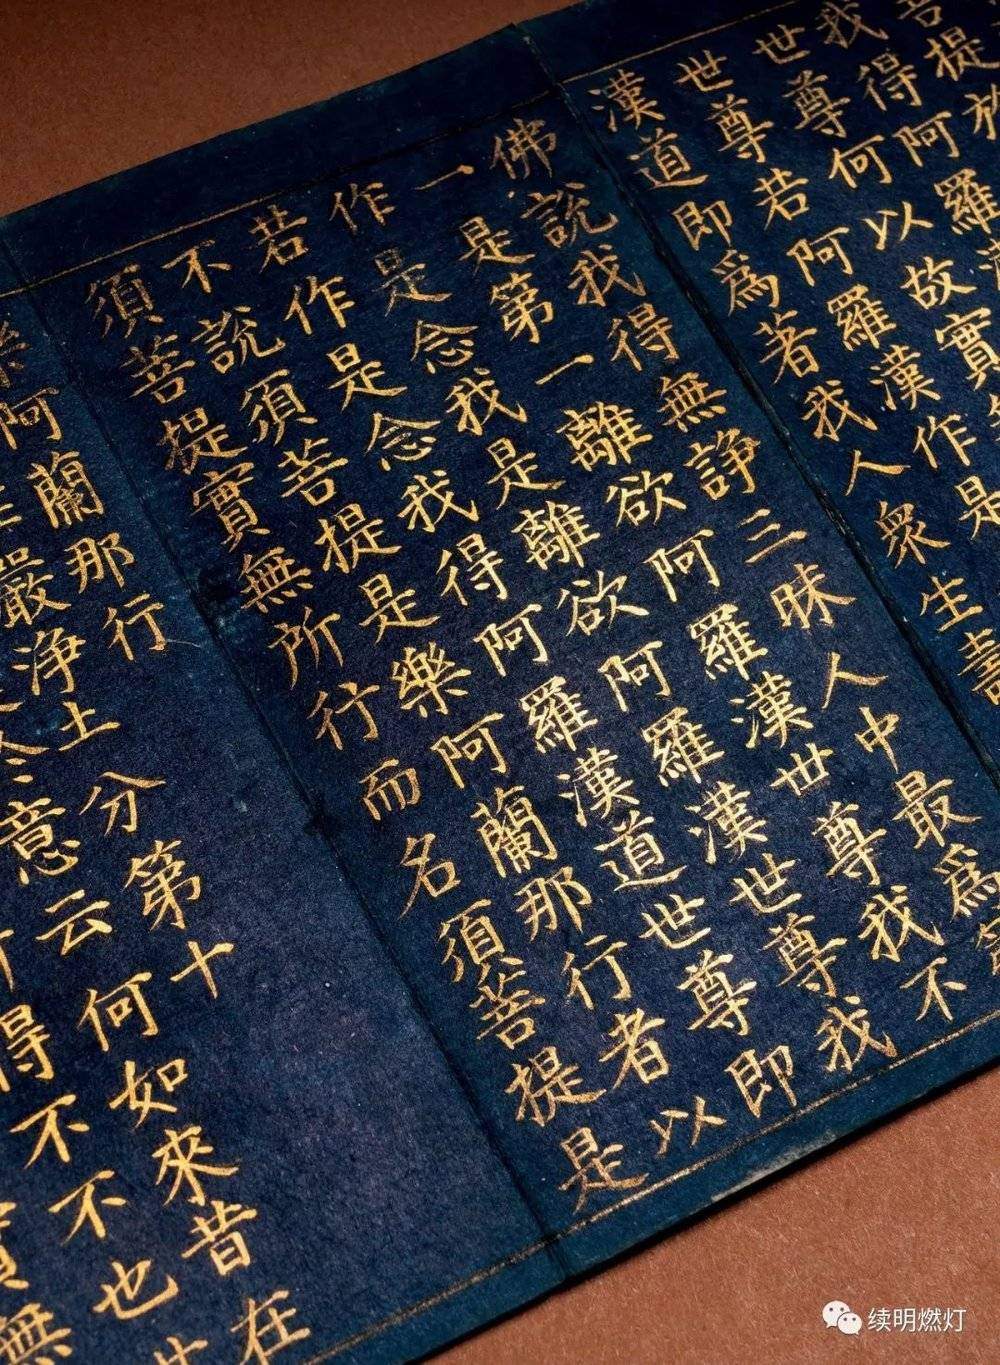 菩提於
我得阿羅
世尊何以故實
世尊若阿羅漢作是
漢道即爲著我人衆生壽
佛說我得無諍三昧人中最爲
一是第一離欲阿羅漢世尊我不
作是念我是離欲阿羅漢世尊我
若作是念我得阿羅漢道世尊即
不說須菩提是樂阿蘭那行者以
須菩提實無所行而名須菩提是
樂阿蘭那行
嚴淨土分第十
意云何如來昔在
得不不也世
實無
续明燃灯